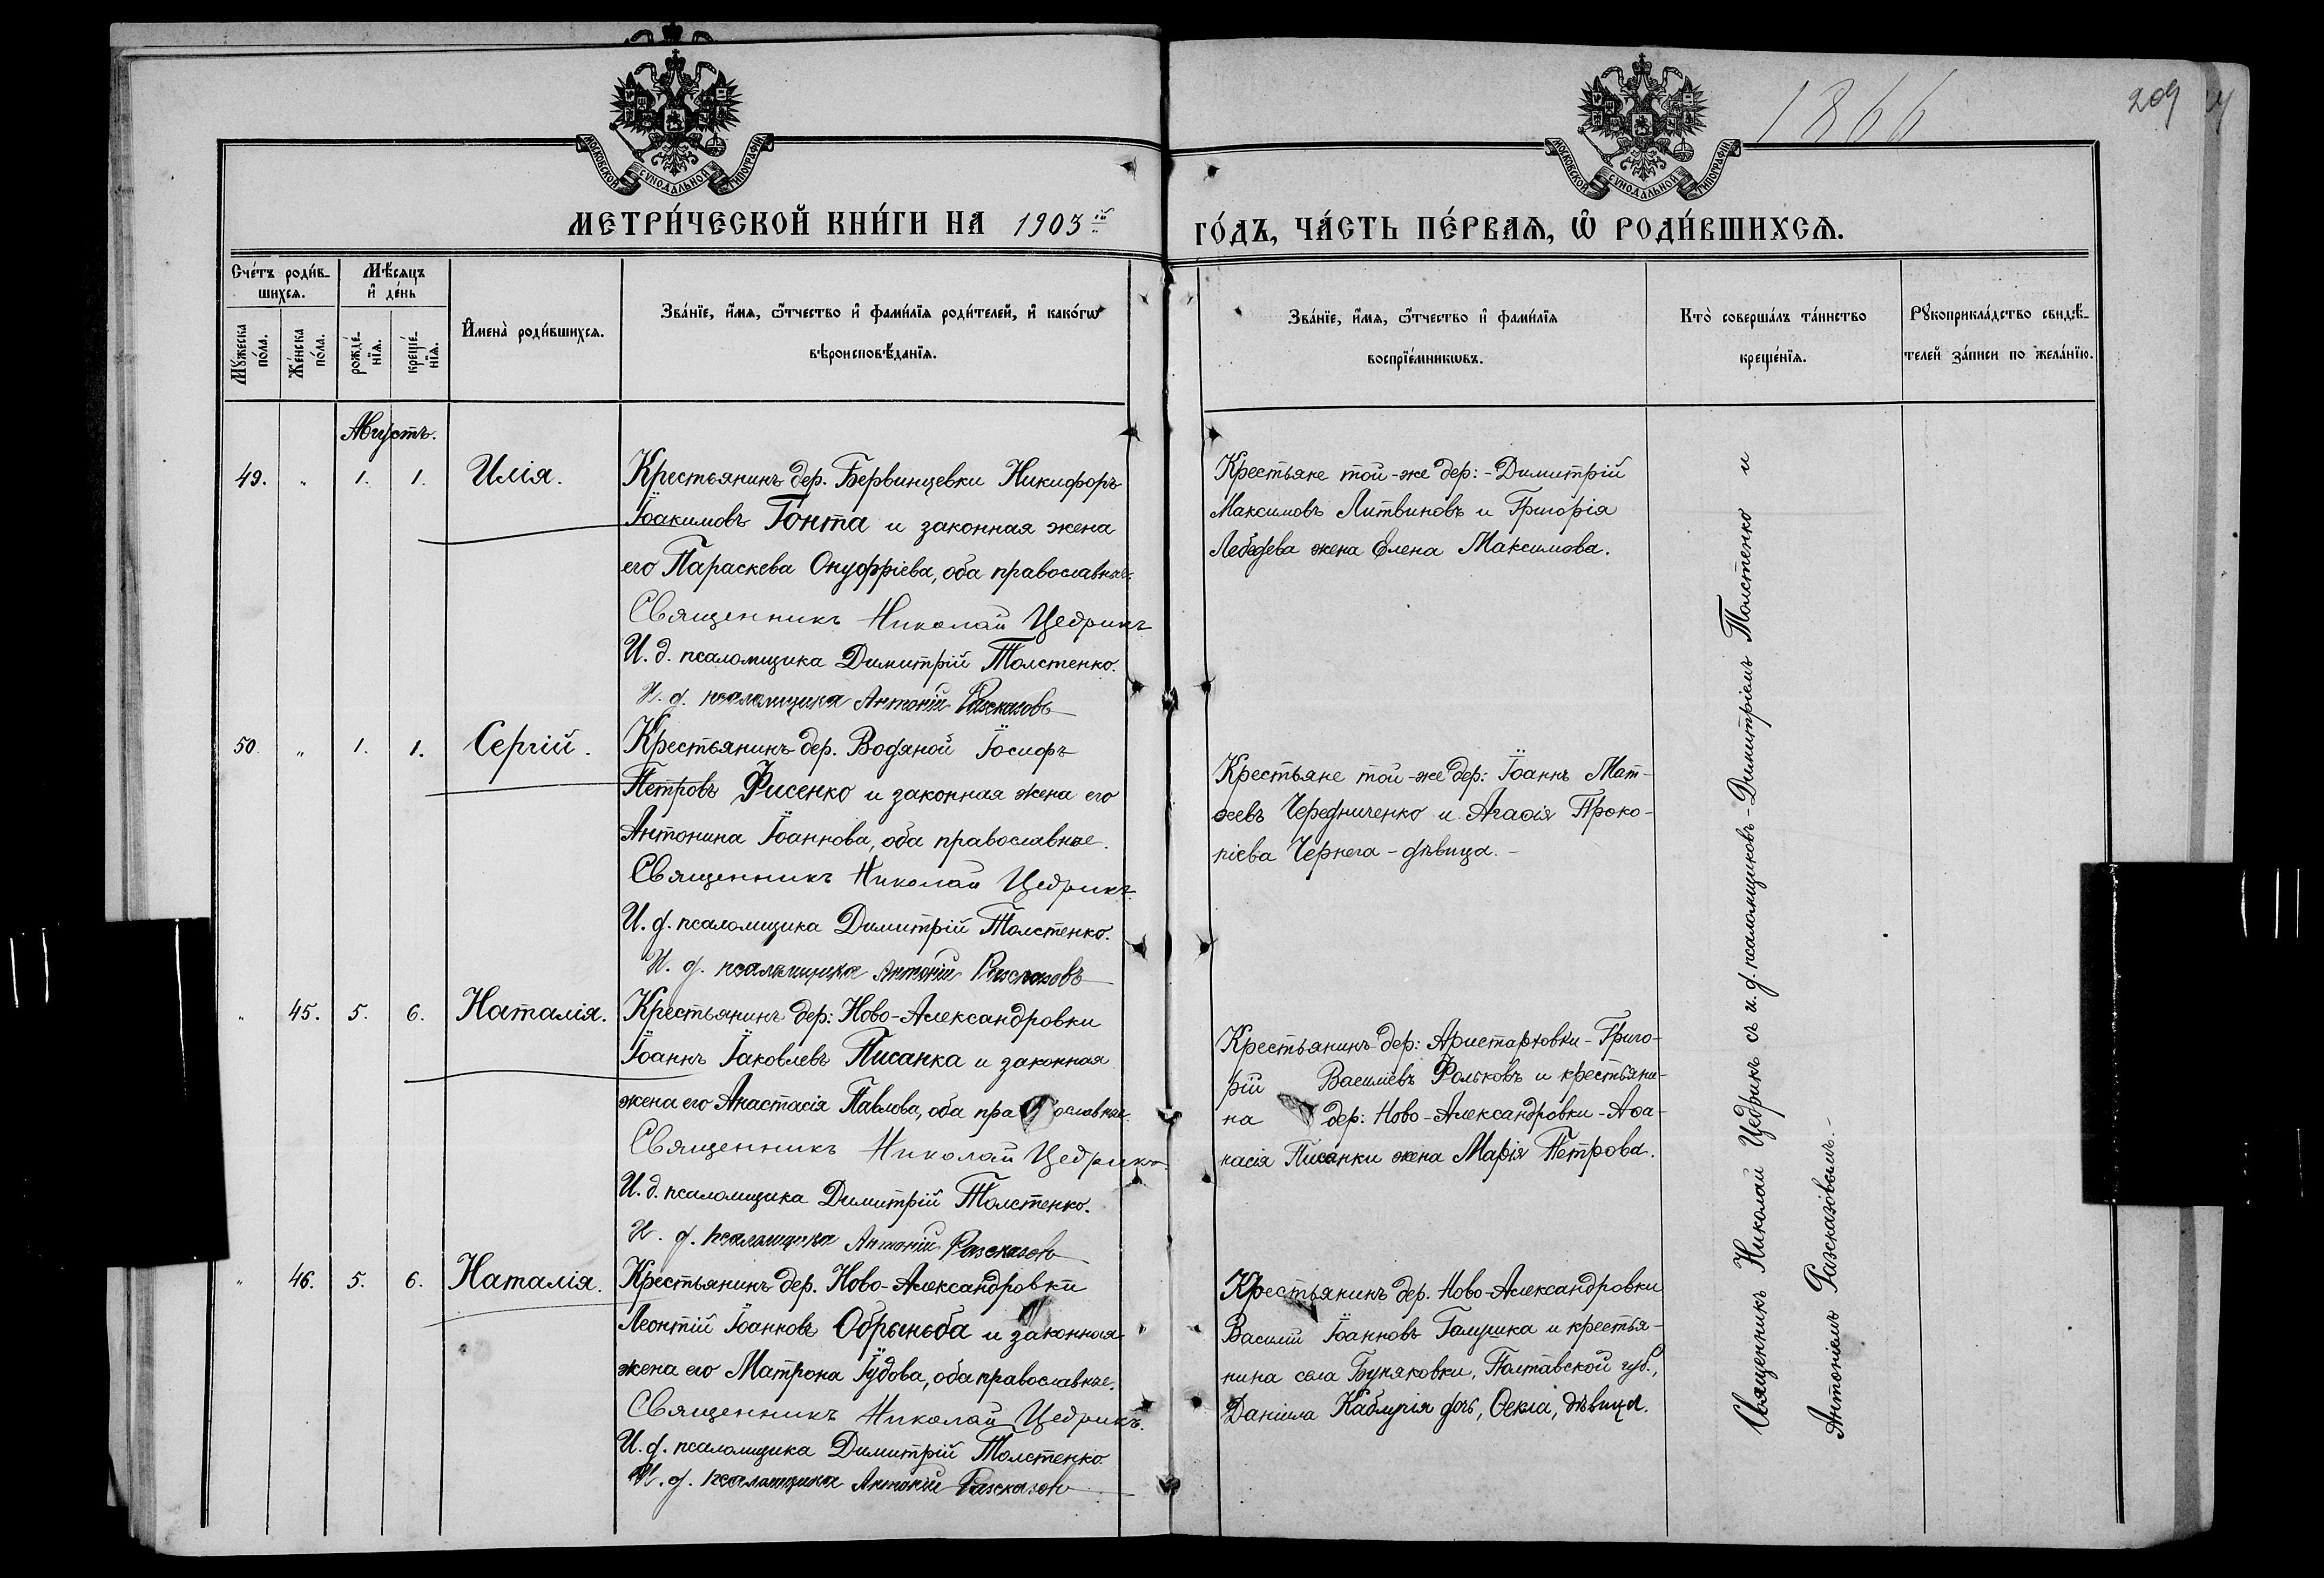 МОСКОВСКОЙ СѴНОДАЛЬНОЙ ТИПОГРАФІИ
МОСКОВСКОЙ СѴНОДАЛЬНОЙ ТИПОГРАФІИ
1866
209
МЕТРИ́ЧЕСКОЙ КНИ́ГИ НА 1903 ій
ГО́ДЪ, ЧА́СТЬ ПЕ́РВАѦ, Ѡ҆ РОДИ́ВШИХСѦ.
Сче́тъ роди́в-
шихсѧ.
Мѣ́сяцъ
и҆ де́нь
Мꙋ́жеска по́ла.
Же́нска по́ла.
рожде́-
нїѧ.
креще́-
нїѧ.
И҆мена̀ роди́вшихсѧ.
Зва́нїе, и҆́мѧ, ѻ҆́тчество и҆ фами́лїѧ роди́телей, и҆ како́гѡ
вѣроисповѣ́данїѧ.
Зва́нїе, и҆́мѧ, ѻ҆́тчество и҆ фами́лїѧ
воспрїе́мникѡвъ.
Кто̀ соверша́лъ та́инство
креще́нїѧ.
Рꙋкоприкла́дство свидѣ́-
телей за́писи по жела́нїю.
Августъ.
49. „ 1. 1. Илія.
Крестьянинъ дер. Бервинцевки Никифоръ
Іоакимовъ Гонта и законная жена
его Параскева Онуфріева, оба православные.
Священникъ Николай Цедрикъ
И. д. псаломщика Димитрій Толстенко.
И. д. псаломщика Антоній Разсказовъ
Крестьяне той-же дер:-Димитрій
Максимовъ Литвиновъ и Григорія
Лебедева жена Елена Максимова.
50. „ 1. 1. Сергій.
Крестьянинъ дер. Водяной Іосифъ
Петровъ Фисенко и законная жена его
Антонина Іоаннова, оба православные.
Священникъ Николай Цедрикъ
И. д. псаломщика Димитрій Толстенко.
И. д. псаломщика Антоній Разсказовъ
Крестьяне той-же дер: Іоаннъ Мат-
ѳеевъ Чередниченко и Агаѳія Проко-
піева Чернега - дѣвица.-
„ 45. 5. 6. Наталія.
Крестьянинъ дер: Ново-Александровки
Іоаннъ Іаковлевъ Писанка и законная
жена его Анастасія Павлова, оба православные.
Священникъ Николай Цедрикъ
И. д. псаломщика Димитрій Толстенко.
И. д. псаломщика Антоній Разсказовъ
Крестьянинъ дер: Аристарховки-Григо-
рій Василіевъ Фольковъ и крестьяни-
на дер: Ново-Александровки-Аѳа-
насія Писанки жена Марія Петрова.
„ 46. 5. 6. Наталія.
Крестьянинъ дер. Ново-Александровки
Леонтій Іоанновъ Обрыньба и законная
жена его Матрона Іудова, оба православные.
Священникъ Николай Цедрикъ.
И. д. псаломщика Димитрій Толстенко
И. д. псаломщика Антоній Разсказовъ
Крестьянинъ дер. Ново-Александровки
Василій Іоанновъ Галушка и крестья-
нина села Буняковки, Полтавской губ.,
Даніила дочь, Ѳекла, дѣвица.
Священникъ Николай Цедрикъ съ и. д. псаломщиковъ-Димитріемъ Толстенко и
Антоніемъ Разсказовымъ.-